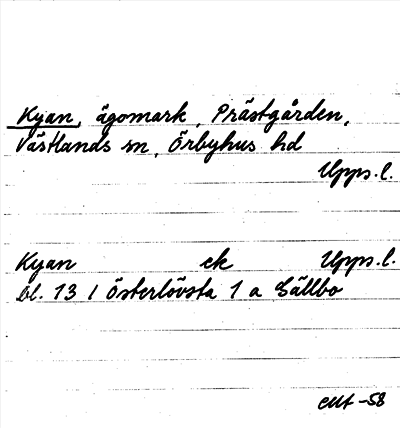 Kyan, ägomark, Prästgården,
Västlands sn, Örbyhus hd
Upps. l.
Kyan ek Upps. l.
bl. 13 I Österlövsta 1 a Sällbo
-58